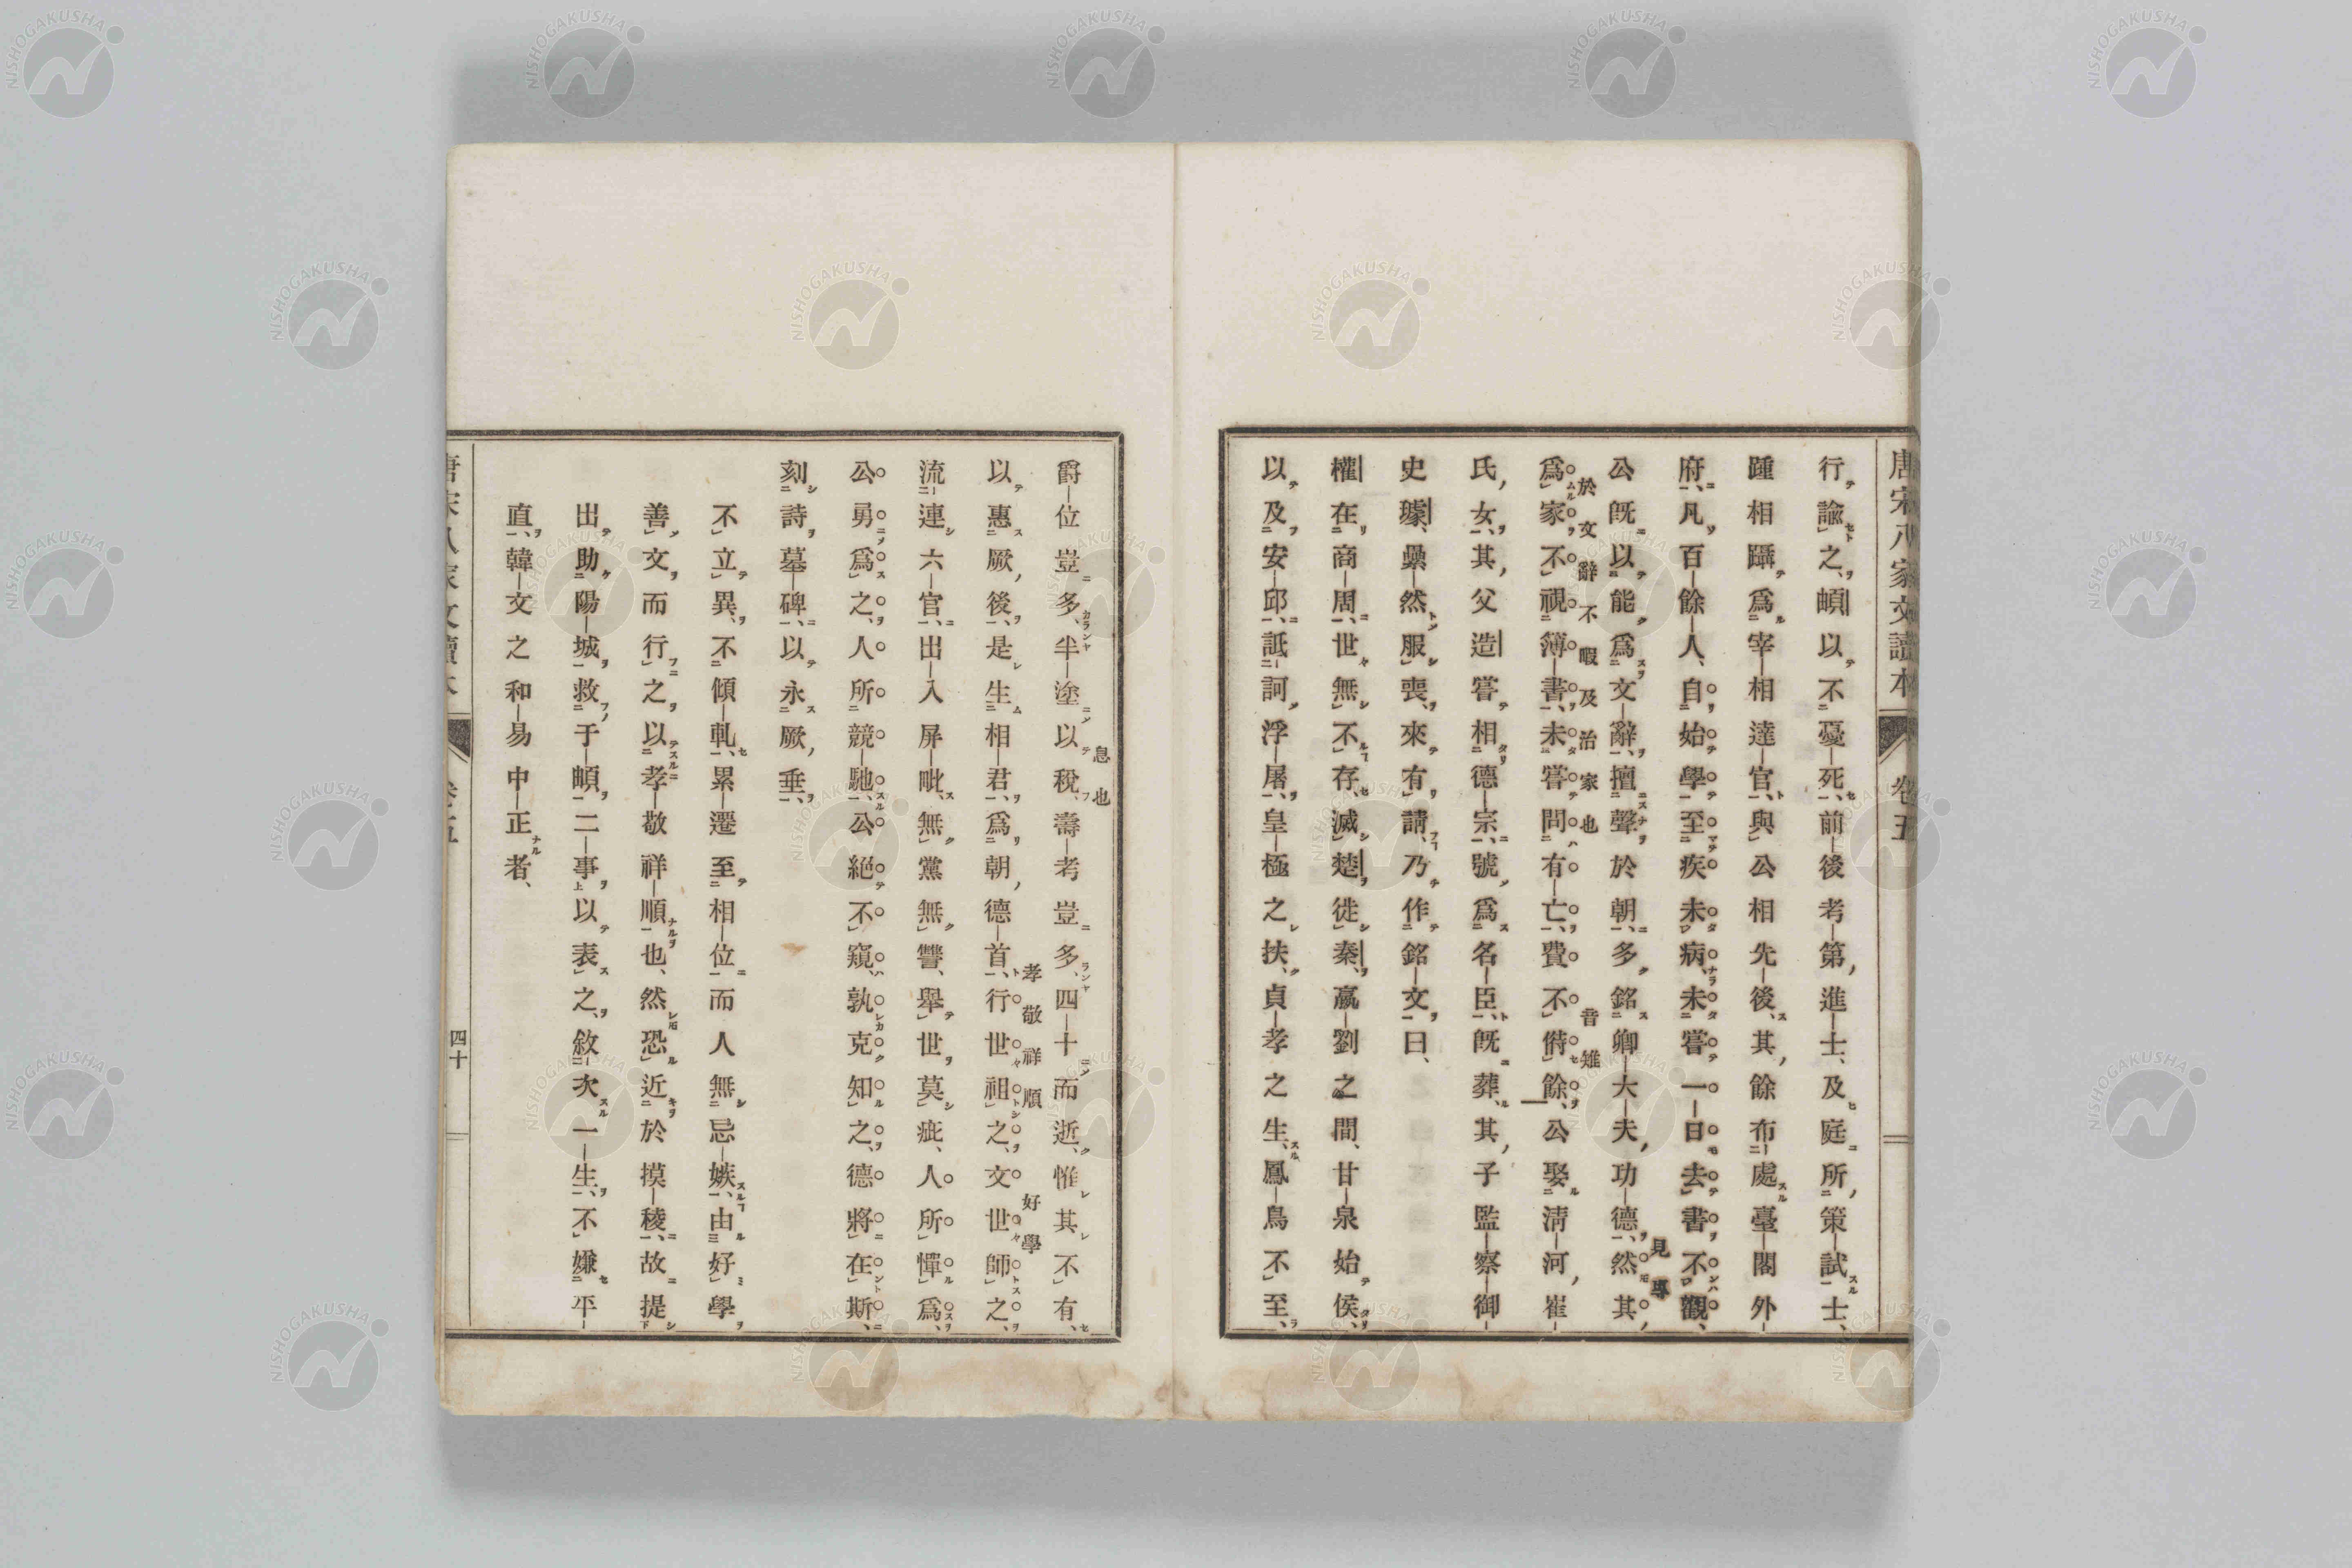 唐宋八家文讀本 卷五
行諭之、頔以不憂死、前後考第進士、及庭所策試士、
踵相躡爲宰相達官、與公相先後、其餘布處臺閣外
府、凡百餘人、自始學至疾未病、未嘗一日去書不觀、
見專
公既以能爲文辭、擅聲於朝、多銘卿大夫功德、然其
於文辭不暇及治家也
音雉
爲家不視簿書、未嘗問有亡、費不偫餘、公娶清河崔
氏女、其父造嘗相德宗、號爲名臣、既葬、其子監察御
史璩、纍然服喪、來有請、乃作銘文曰、
權在商周、世無不存、滅楚徙秦、嬴劉之間、甘泉始侯、
以及安邱、詆訶浮屠、皇極之扶、貞孝之生、鳳鳥不至、
息也
爵位豈多、半塗以稅、壽考豈多、四十而逝、惟其不有、
孝敬祥順
好學
以惠厥後、是生相君、爲朝德首、行世祖之、文世師之、
流連六官、出入屏毗、無黨無讐、舉世莫疵、人所憚爲、
公勇爲之、人所競馳、公絕不窺、孰克知之、德將在斯、
刻詩墓碑、以永厥垂、
不立異、不傾軋、累遷至相位而人無忌嫉、由好學
善文而行之以孝敬祥順也、然恐近於摸稜、故提
出助陽城救于頔二事以表之、敘次一生、不嫌平
直、韓文之和易中正者、
四十